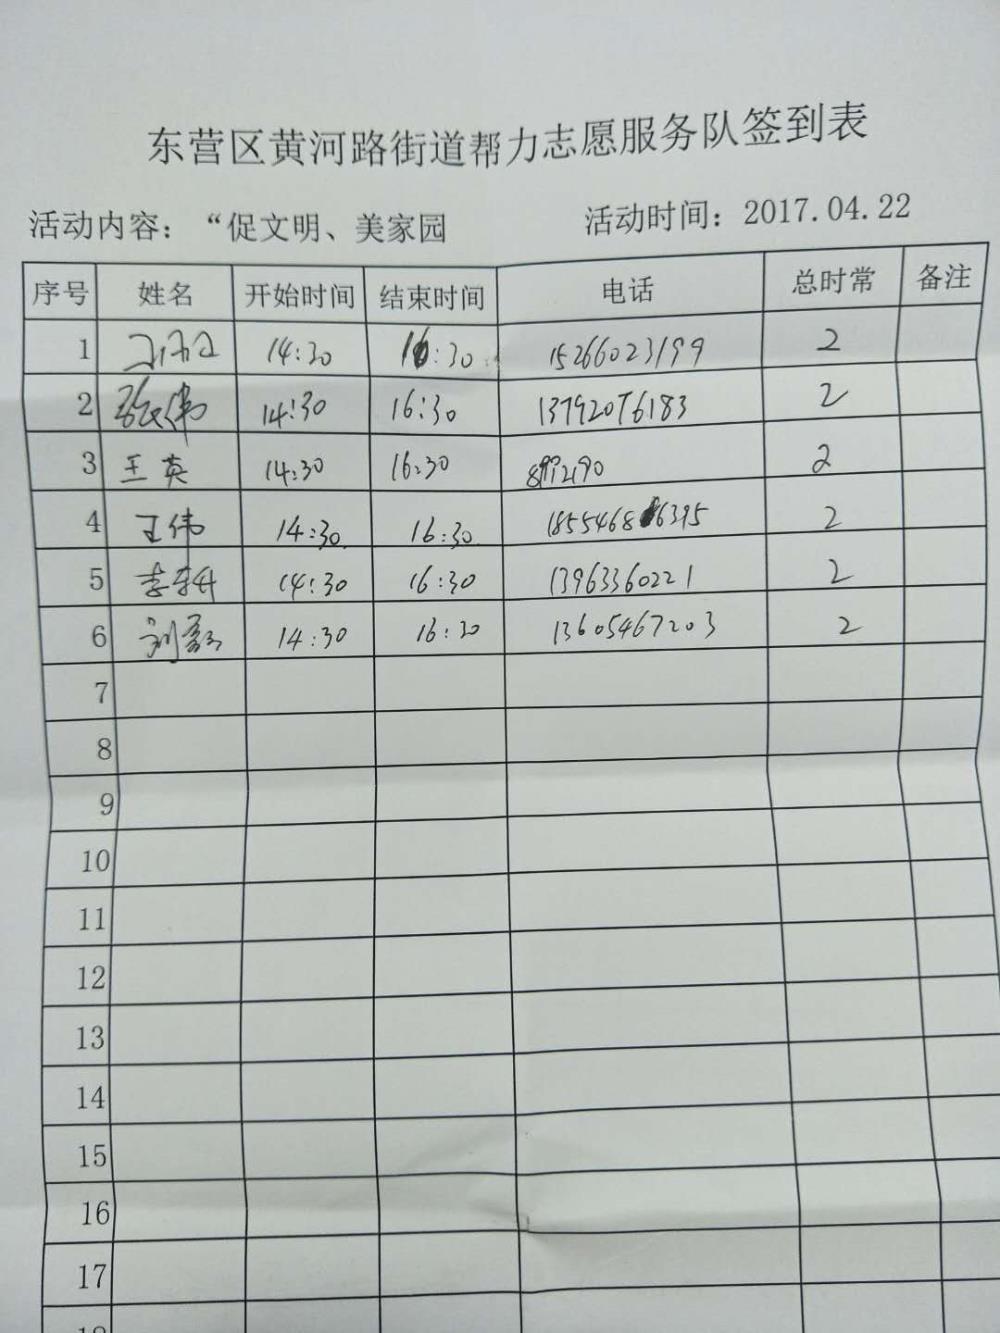 东营区黄河路街道帮力志愿服务队签到表
活动内容：“促文明、美家园 活动时间：2017.04.22
序号 姓名 开始时间 结束时间 电话 总时常 备注
1 14:30 16:30 15266023199 2
2 张伟 14:30 16:30 13792076183 2
3 王英 14:30 16:30 8992190 2
4 王伟 14:30 16:30 18554686395 2
5 李 14:30 16:30 13963360221 2
6 刘 14:30 16:30 13605467203 2
7
8
9
10
11
12
13
14
15
16
17
18